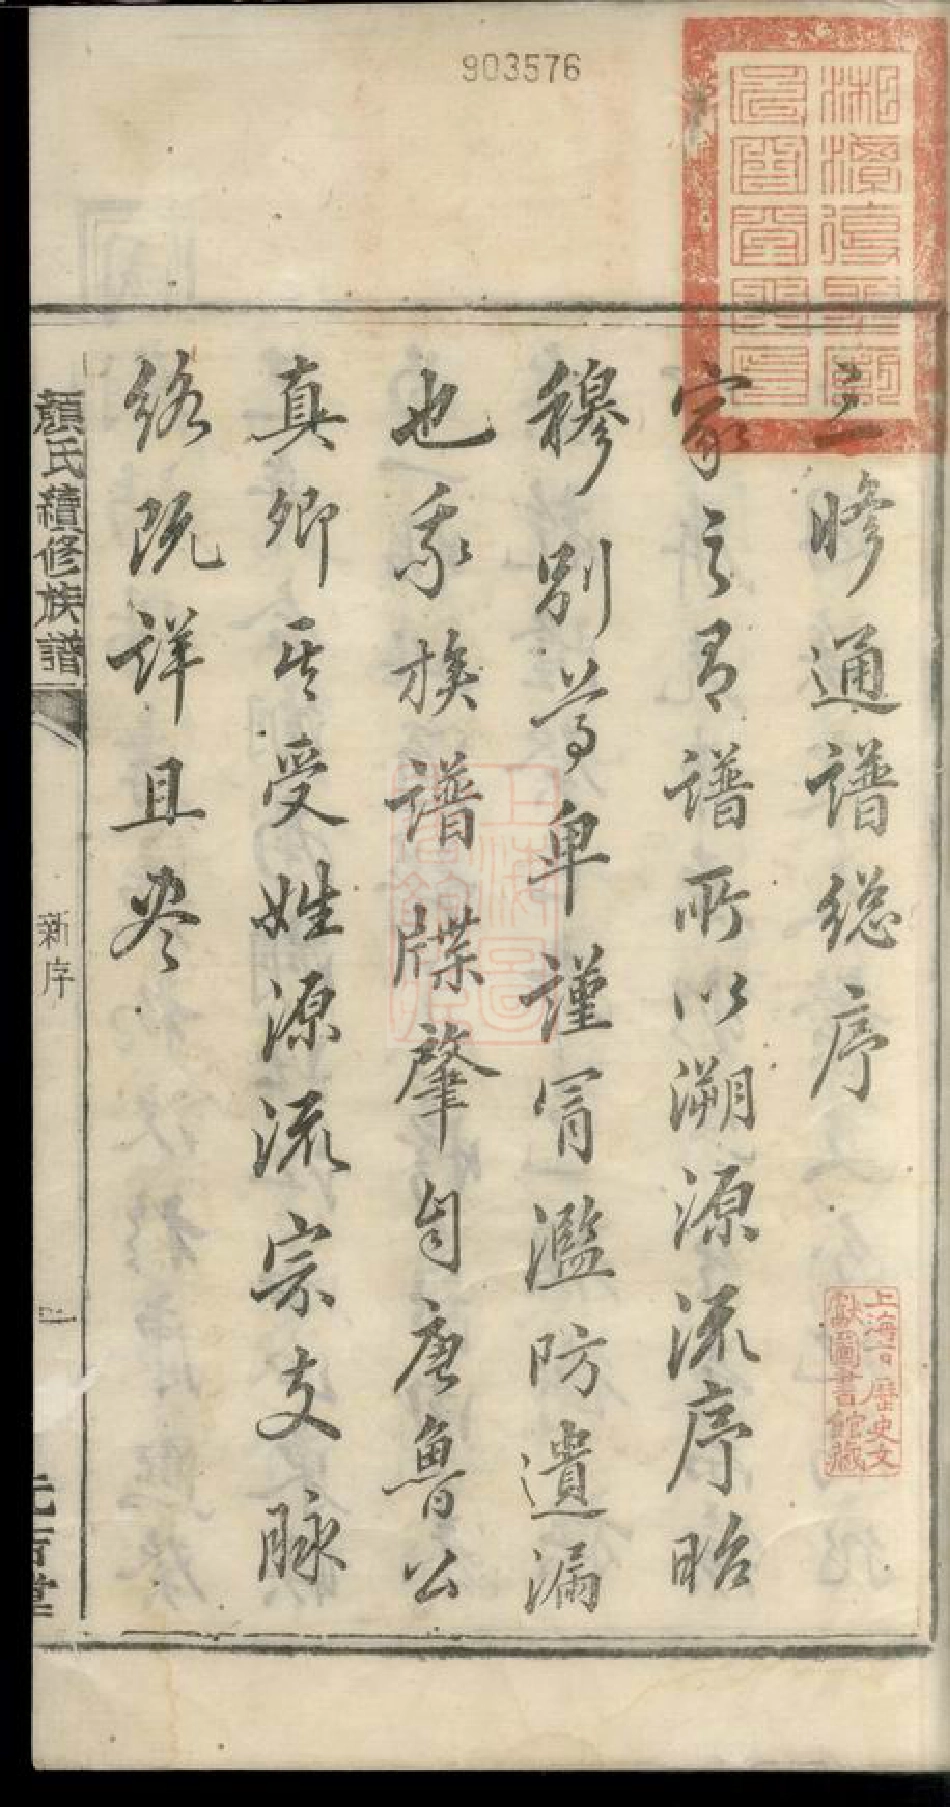 903576
三修通譜總序
家之有譜所以溯源流序昭
穆別尊卑謹冒濫防遺漏
也我族譜牒肇自唐魯公
真卿其受姓源流宗支脉
絡既詳且盡
顏氏續修族譜
新序
一
上海
歷史文
獻圖書館藏
上海圖
書館藏